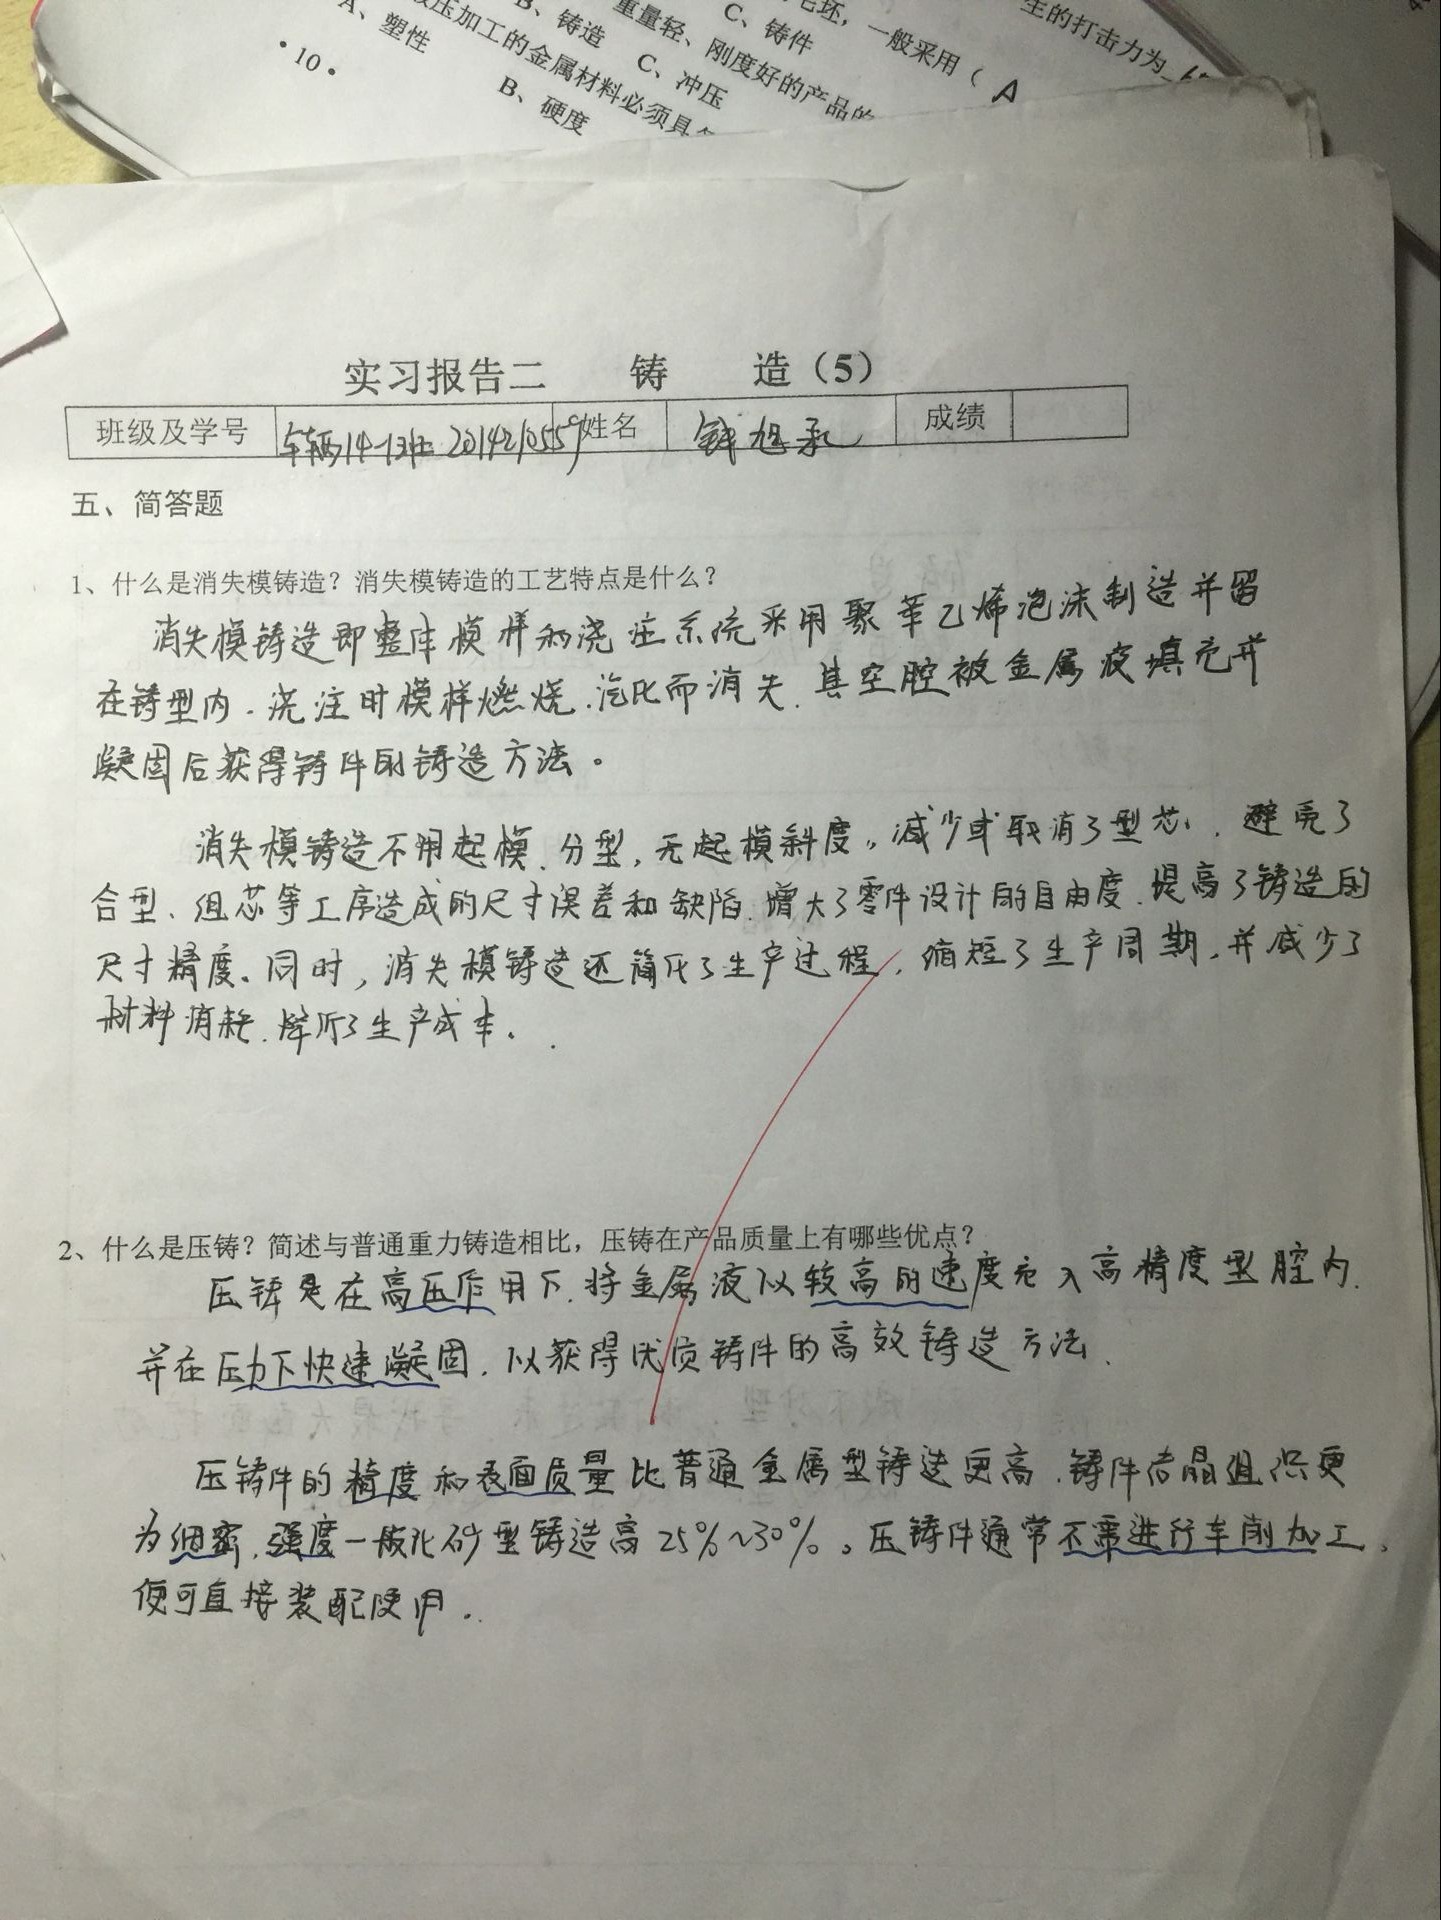 生的打击力为
毛坯，一般采用（ A
C、铸件
重量轻、刚度好的产品的
B、铸造 C、冲压
压加工的金属材料必须具
A、塑性
B、硬度
10
实习报告二 铸 造（5）
班级及学号 车辆14-1班 2014210559 姓名 旭 成绩
五、简答题
1、什么是消失模铸造？消失模铸造的工艺特点是什么？
消失模铸造即整体模样和浇注系统采用聚苯乙烯泡沫制造并留
在铸型内，浇注时模样燃烧、汽化而消失，其空腔被金属液填充并
凝固后获得铸件的铸造方法。
消失模铸造不用起模、分型，无起模斜度，减少或取消了型芯，避免了
合型、组芯等工序造成的尺寸误差和缺陷，增大了零件设计的自由度，提高了铸造的
尺寸精度。同时，消失模铸造还简化了生产过程，缩短了生产周期，并减少了
材料消耗，降低了生产成本。
2、什么是压铸？简述与普通重力铸造相比，压铸在产品质量上有哪些优点？
压铸是在高压作用下，将金属液以较高的速度充入高精度型腔内，
并在压力下快速凝固，以获得优质铸件的高效铸造方法。
压铸件的精度和表面质量比普通金属型铸造更高，铸件结晶组织更
为细密，强度一般比砂型铸造高25%~30%。压铸件通常不需进行车削加工，
便可直接装配使用。